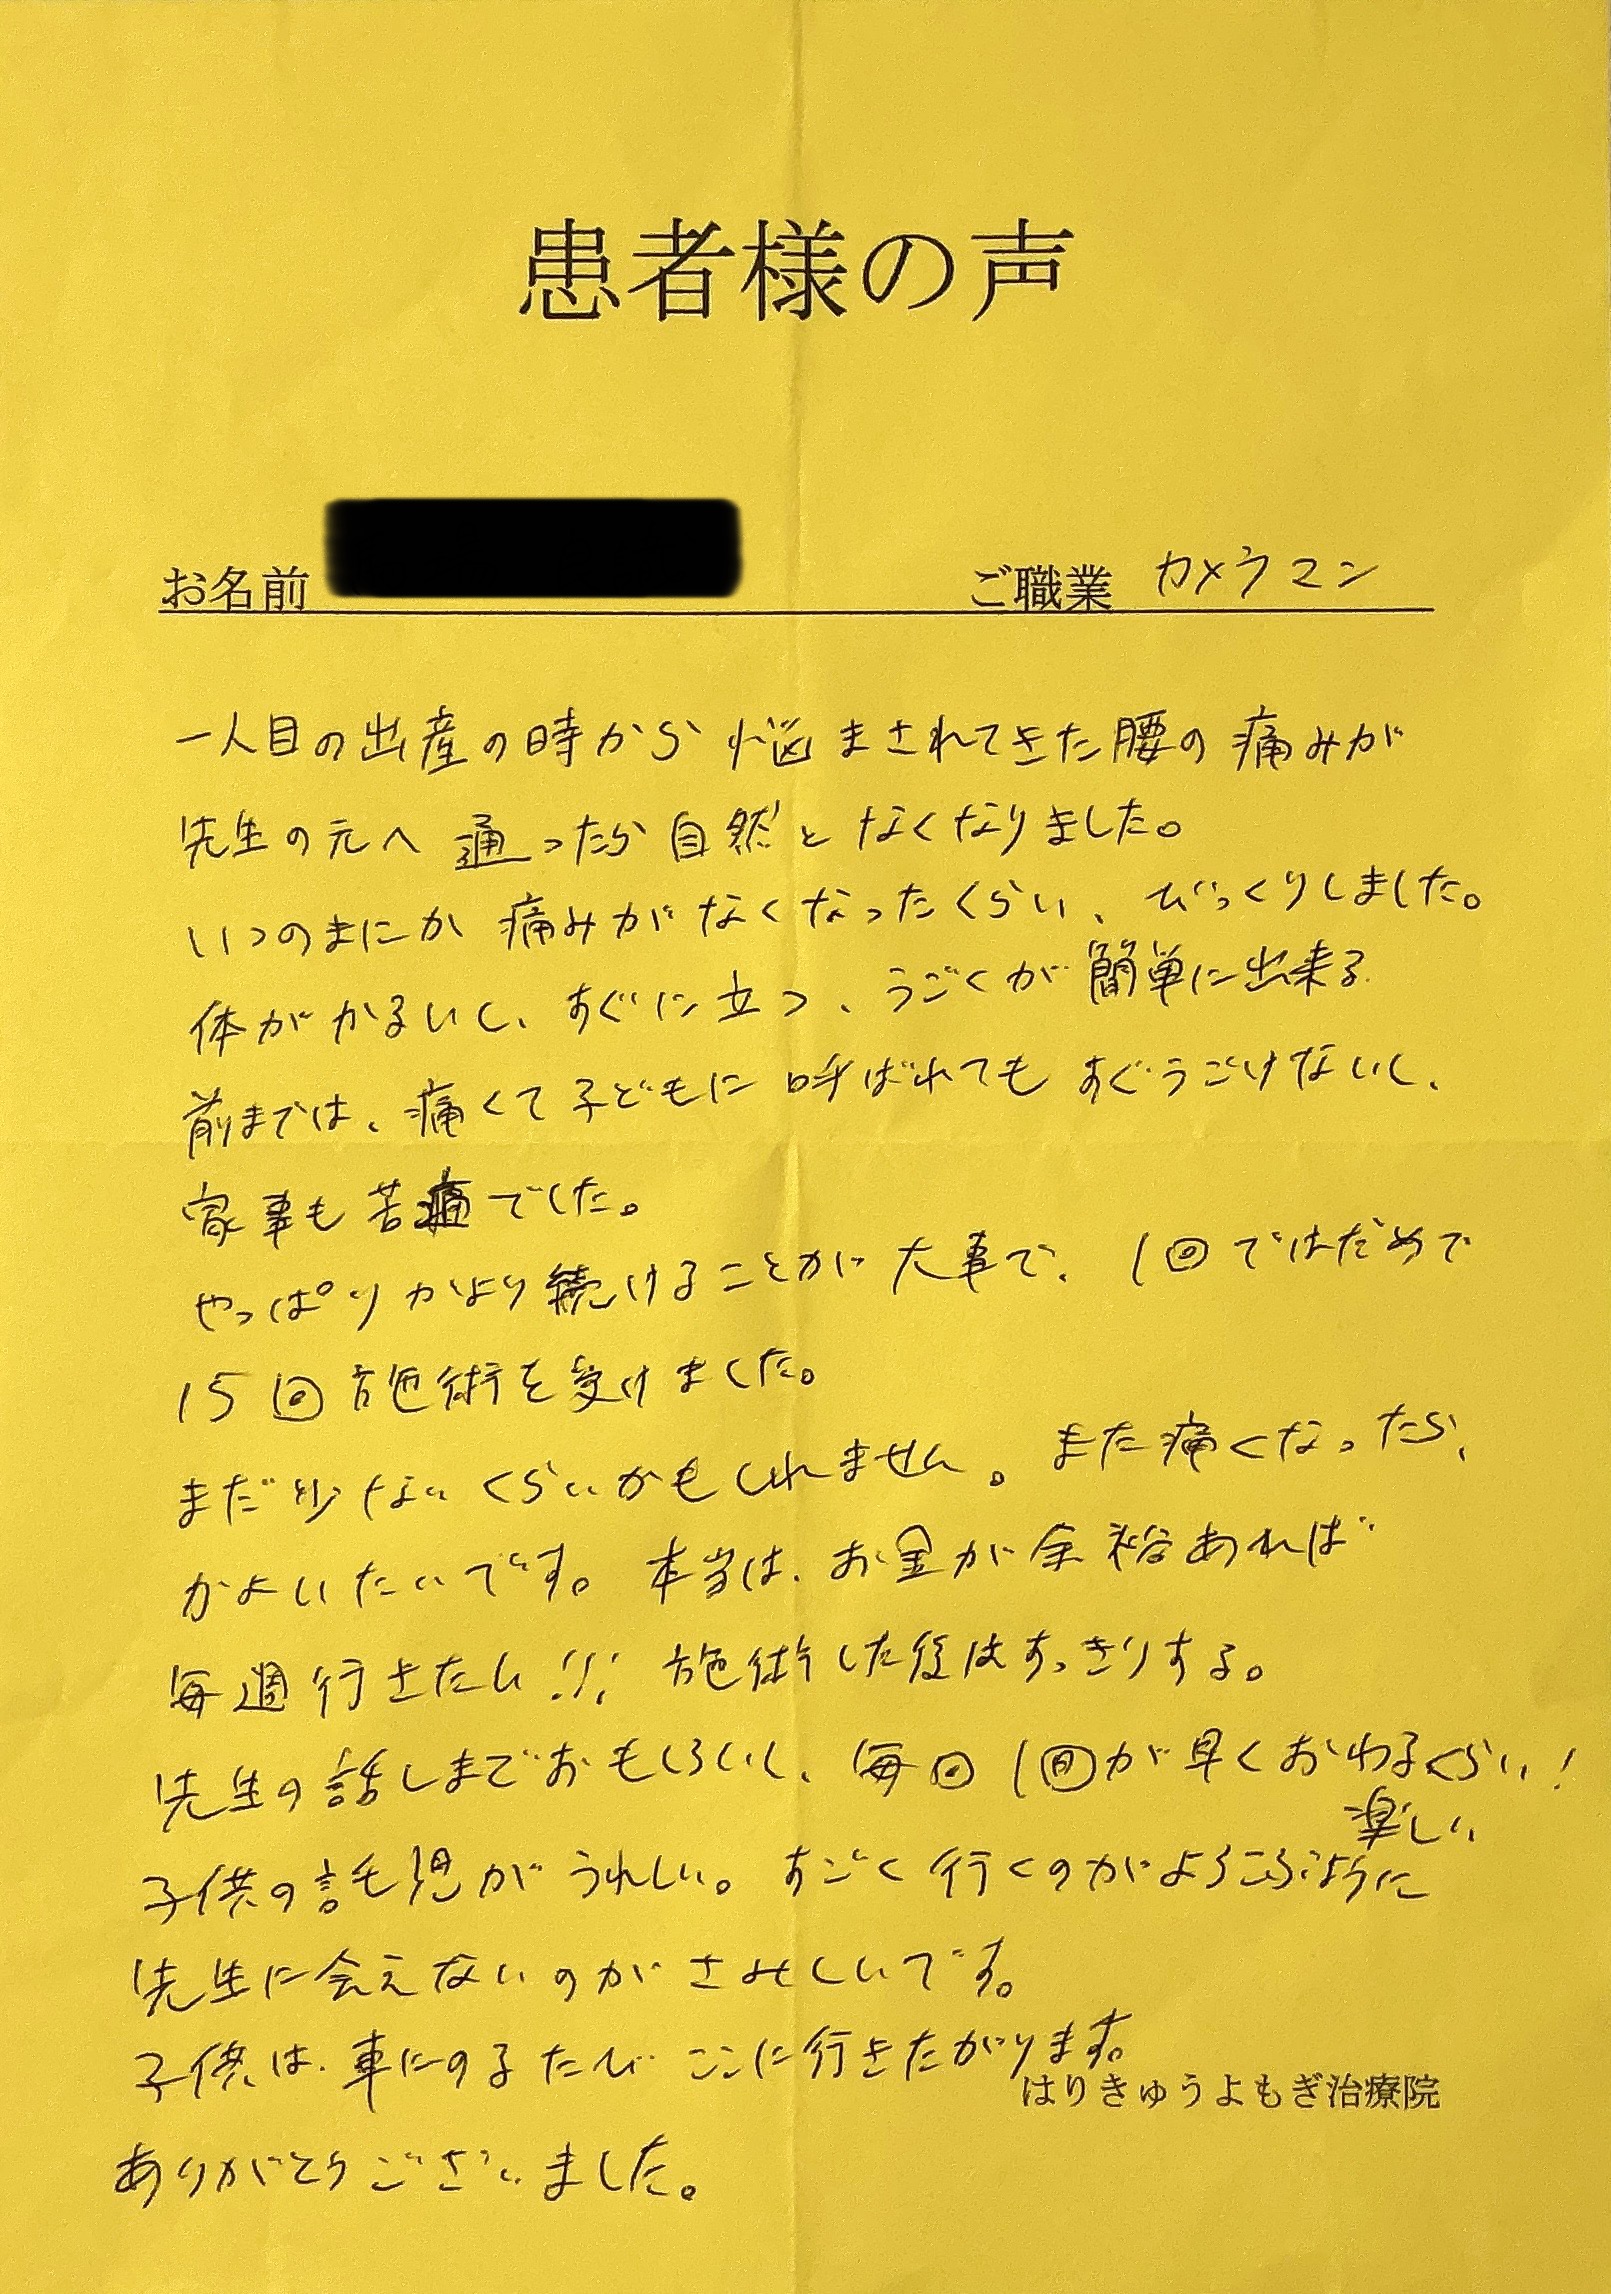 患者様の声
お名前 ご職業 カメラマン
一人目の出産の時から 悩まされてきた腰の痛みが
先生の元へ 通ったら 自然と なくなりました。
いつのまにか 痛みがなくなったくらい、びっくりしました。
体がかるいし、すぐに立つ、うごくが簡単に出来る
前までは、痛くて子どもに呼ばれても すぐうごけないし、
家事も苦痛でした。
やっぱりかより続けることが大事で、1回ではだめで
15回施術を受けました。
まだ少ないくらいかもしれません。また痛くなったら、
かよいたいです。本当は、お金が余裕あれば
毎週行きたい!!! 施術した後はすっきりする。
先生の話しまでおもしろいし、毎回 1回が早くおわるくらい!
楽しい
子供の託児がうれしい。すごく行くのがよろこぶように
先生に会えないのがさみしいです。
子供は、車にのるたび ここに行きたがります。
はりきゅうよもぎ治療院
ありがとうございました。